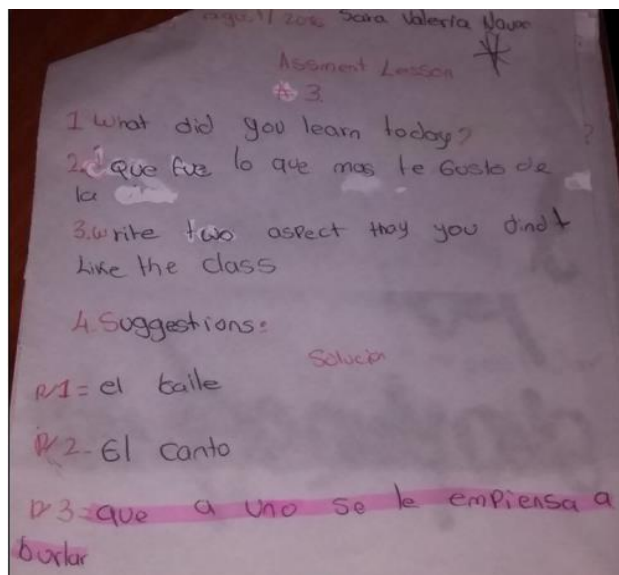 Sara Valeria
Assment Lesson
# 3.
1 What did you learn today?
2. Que fue lo que mas te Gusto de
la
3. write two aspect thay you dindt
Like the class
4. Suggestions:
Solucion
R/1= el baile
R/2- El canto
R/3= que a uno se le empiensa a
burlar